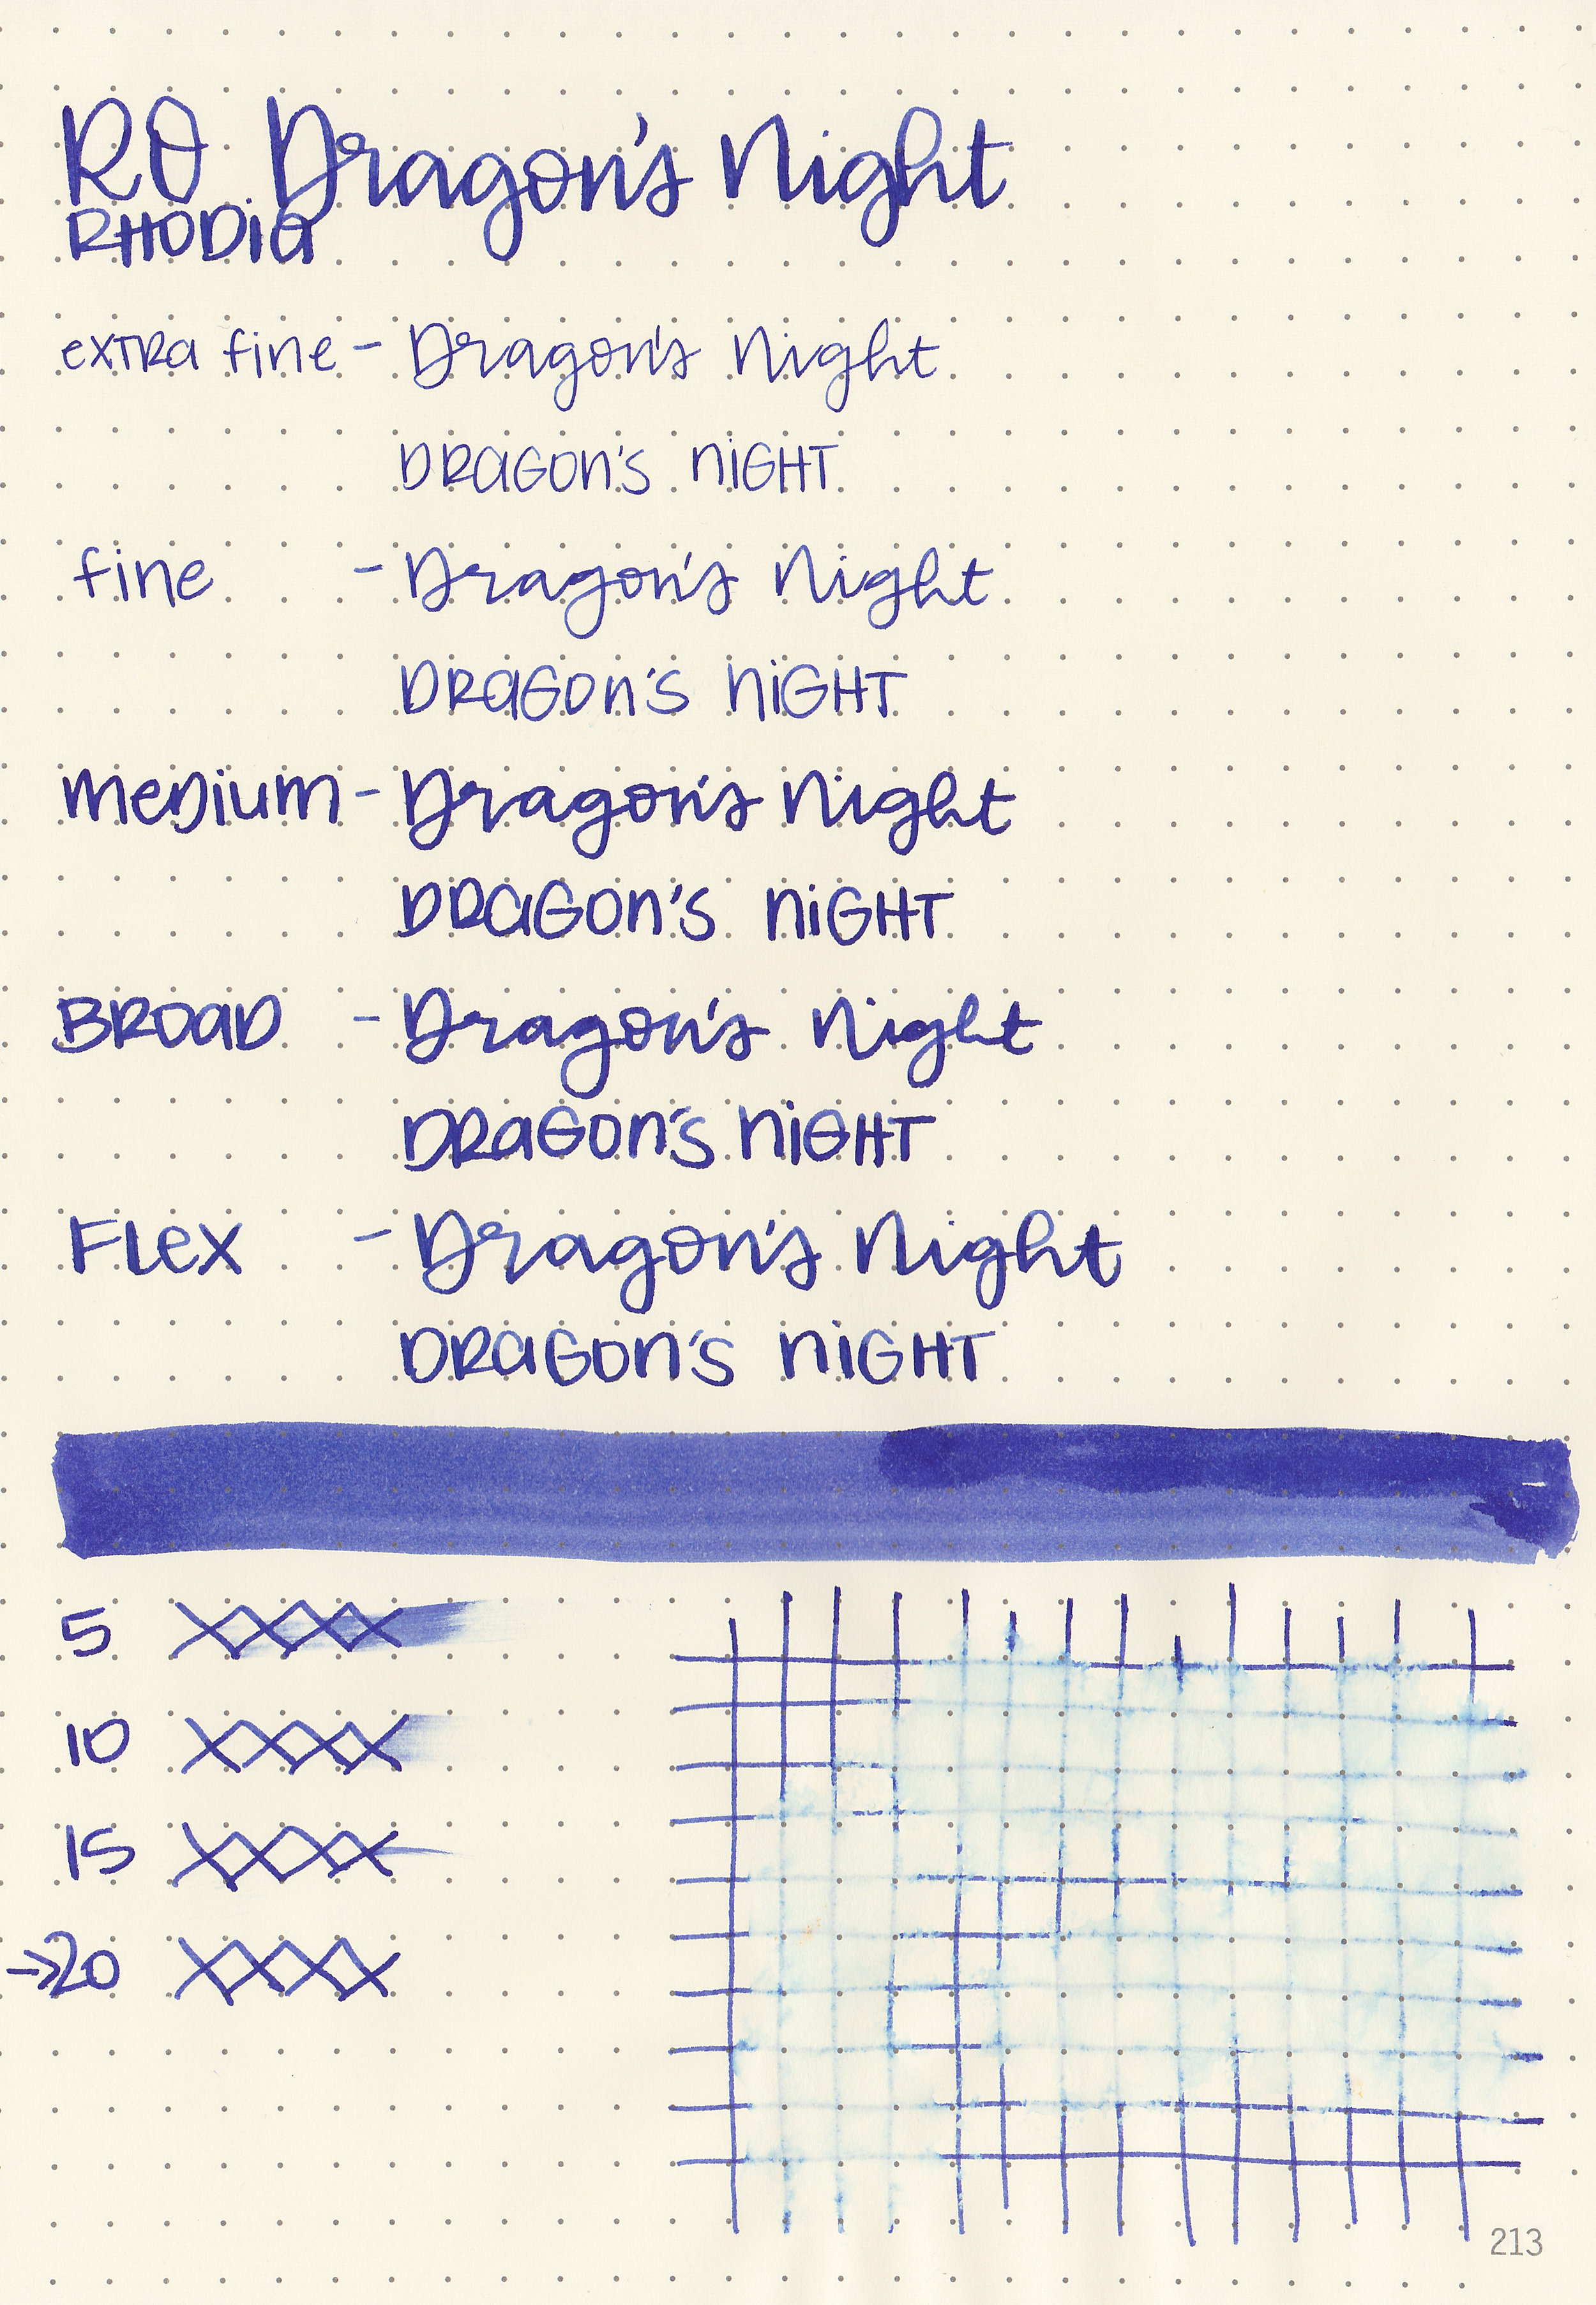 RO Dragon's Night
RHODIA
extra fine - Dragon's Night
DRAGON'S NIGHT
fine - Dragon's Night
DRAGON'S NIGHT
medium - Dragon's Night
DRAGON'S NIGHT
BROAD - Dragon's Night
DRAGON'S NIGHT
Flex - Dragon's Night
DRAGON'S NIGHT
5 XXXX
10 XXXX
15 XXXX
→20 XXXX
213